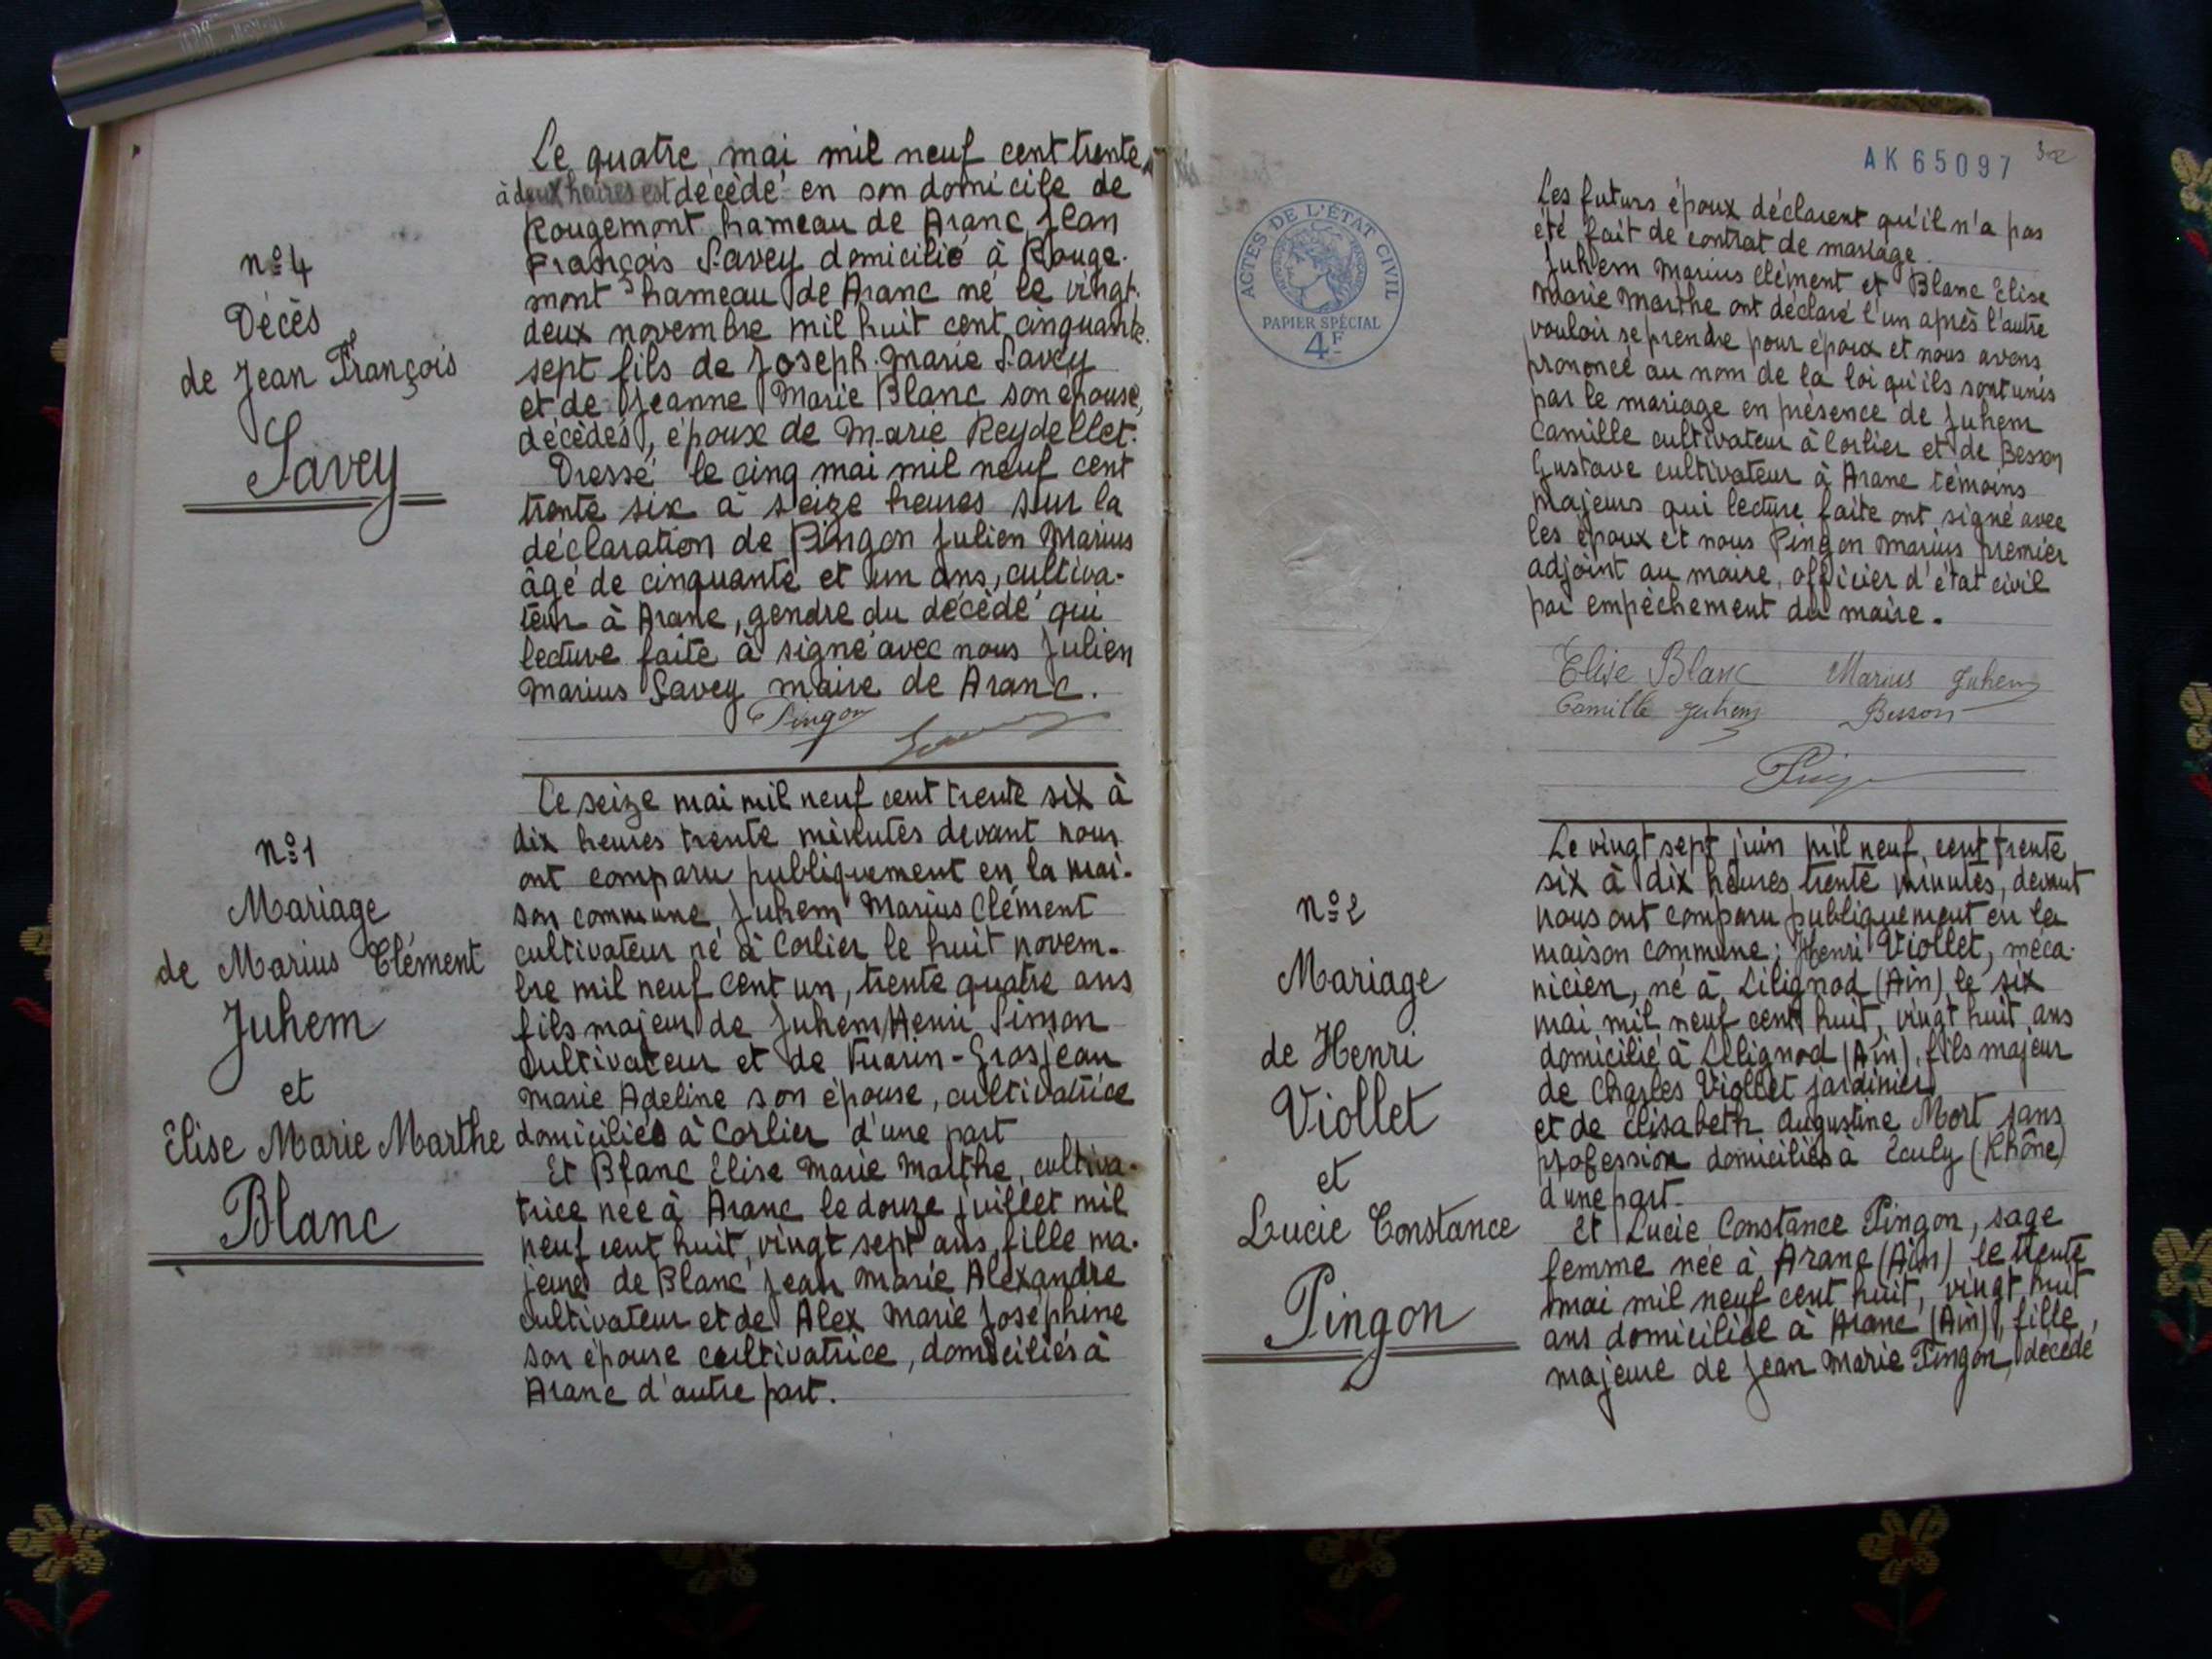 n° 4
Décès
de Jean François
Savey
Le quatre mai mil neuf cent trente
à deux heures est décédé en son domicile de
Rougemont hameau de Aranc Jean
François Savey domicilié à Rouge-
mont hameau de Aranc né le vingt-
deux novembre mil huit cent cinquante-
sept fils de Joseph-Marie Savey
et de Jeanne Marie Blanc son épouse,
décédés, époux de Marie Reydellet.
Dressé le cinq mai mil neuf cent
trente six à seize heures sur la
déclaration de Pingon Julien Marius
âgé de cinquante et un ans, cultiva-
teur à Aranc, gendre du décédé qui
lecture faite à signé avec nous Julien
Marius Savey maire de Aranc.
Pingon
n° 1
Mariage
de Marius Clément
Juhem
et
Elise Marie Marthe
Blanc
Le seize mai mil neuf cent trente six à
dix heures trente minutes devant nous
ont comparu publiquement en la mai-
son commune Juhem Marius Clément
cultivateur né à Corlier le huit novem-
bre mil neuf cent un, trente quatre ans
fils majeur de Juhem Henri Simon
cultivateur et de Vuarin-Grosjean
Marie Adeline son épouse, cultivatrice
domiciliés à Corlier d'une part
Et Blanc Elise Marie Marthe, cultiva-
trice née à Aranc le douze juillet mil
neuf cent huit, vingt sept ans, fille ma-
jeure de Blanc Jean Marie Alexandre
cultivateur et de Alex Marie Joséphine
son épouse cultivatrice, domiciliés à
Aranc d'autre part.
AK 65097
32
ACTES DE L'ÉTAT CIVIL
PAPIER SPÉCIAL
4F
Les futurs époux déclarent qu'il n'a pas
été fait de contrat de mariage.
Juhem Marius Clément et Blanc Elise
Marie Marthe ont déclaré l'un après l'autre
vouloir se prendre pour époux et nous avons
prononcé au nom de la loi qu'ils sont unis
par le mariage en présence de Juhem
Camille cultivateur à Corlier et de Besson
Gustave cultivateur à Aranc témoins
majeurs qui lecture faite ont signé avec
les époux et nous Pingon Marius premier
adjoint au maire, officier d'état civil
par empêchement du maire.
Elise Blanc Marius Juhem
Camille Juhem Besson
Pingon
n° 2
Mariage
de Henri
Viollet
et
Lucie Constance
Pingon
Le vingt sept juin mil neuf cent trente
six à dix heures trente minutes, devant
nous ont comparu publiquement en la
maison commune: Henri Viollet, méca-
nicien, né à Lilignod (Ain) le six
mai mil neuf cent huit, vingt huit ans
domicilié à Lilignod (Ain), fils majeur
de Charles Viollet jardinier
et de Elisabeth Augustine Mort sans
profession domiciliés à Ecully (Rhône)
d'une part.
Et Lucie Constance Pingon, sage
femme née à Aranc (Ain) le trente
mai mil neuf cent huit, vingt huit
ans domiciliée à Aranc (Ain), fille
majeure de Jean Marie Pingon, décédé